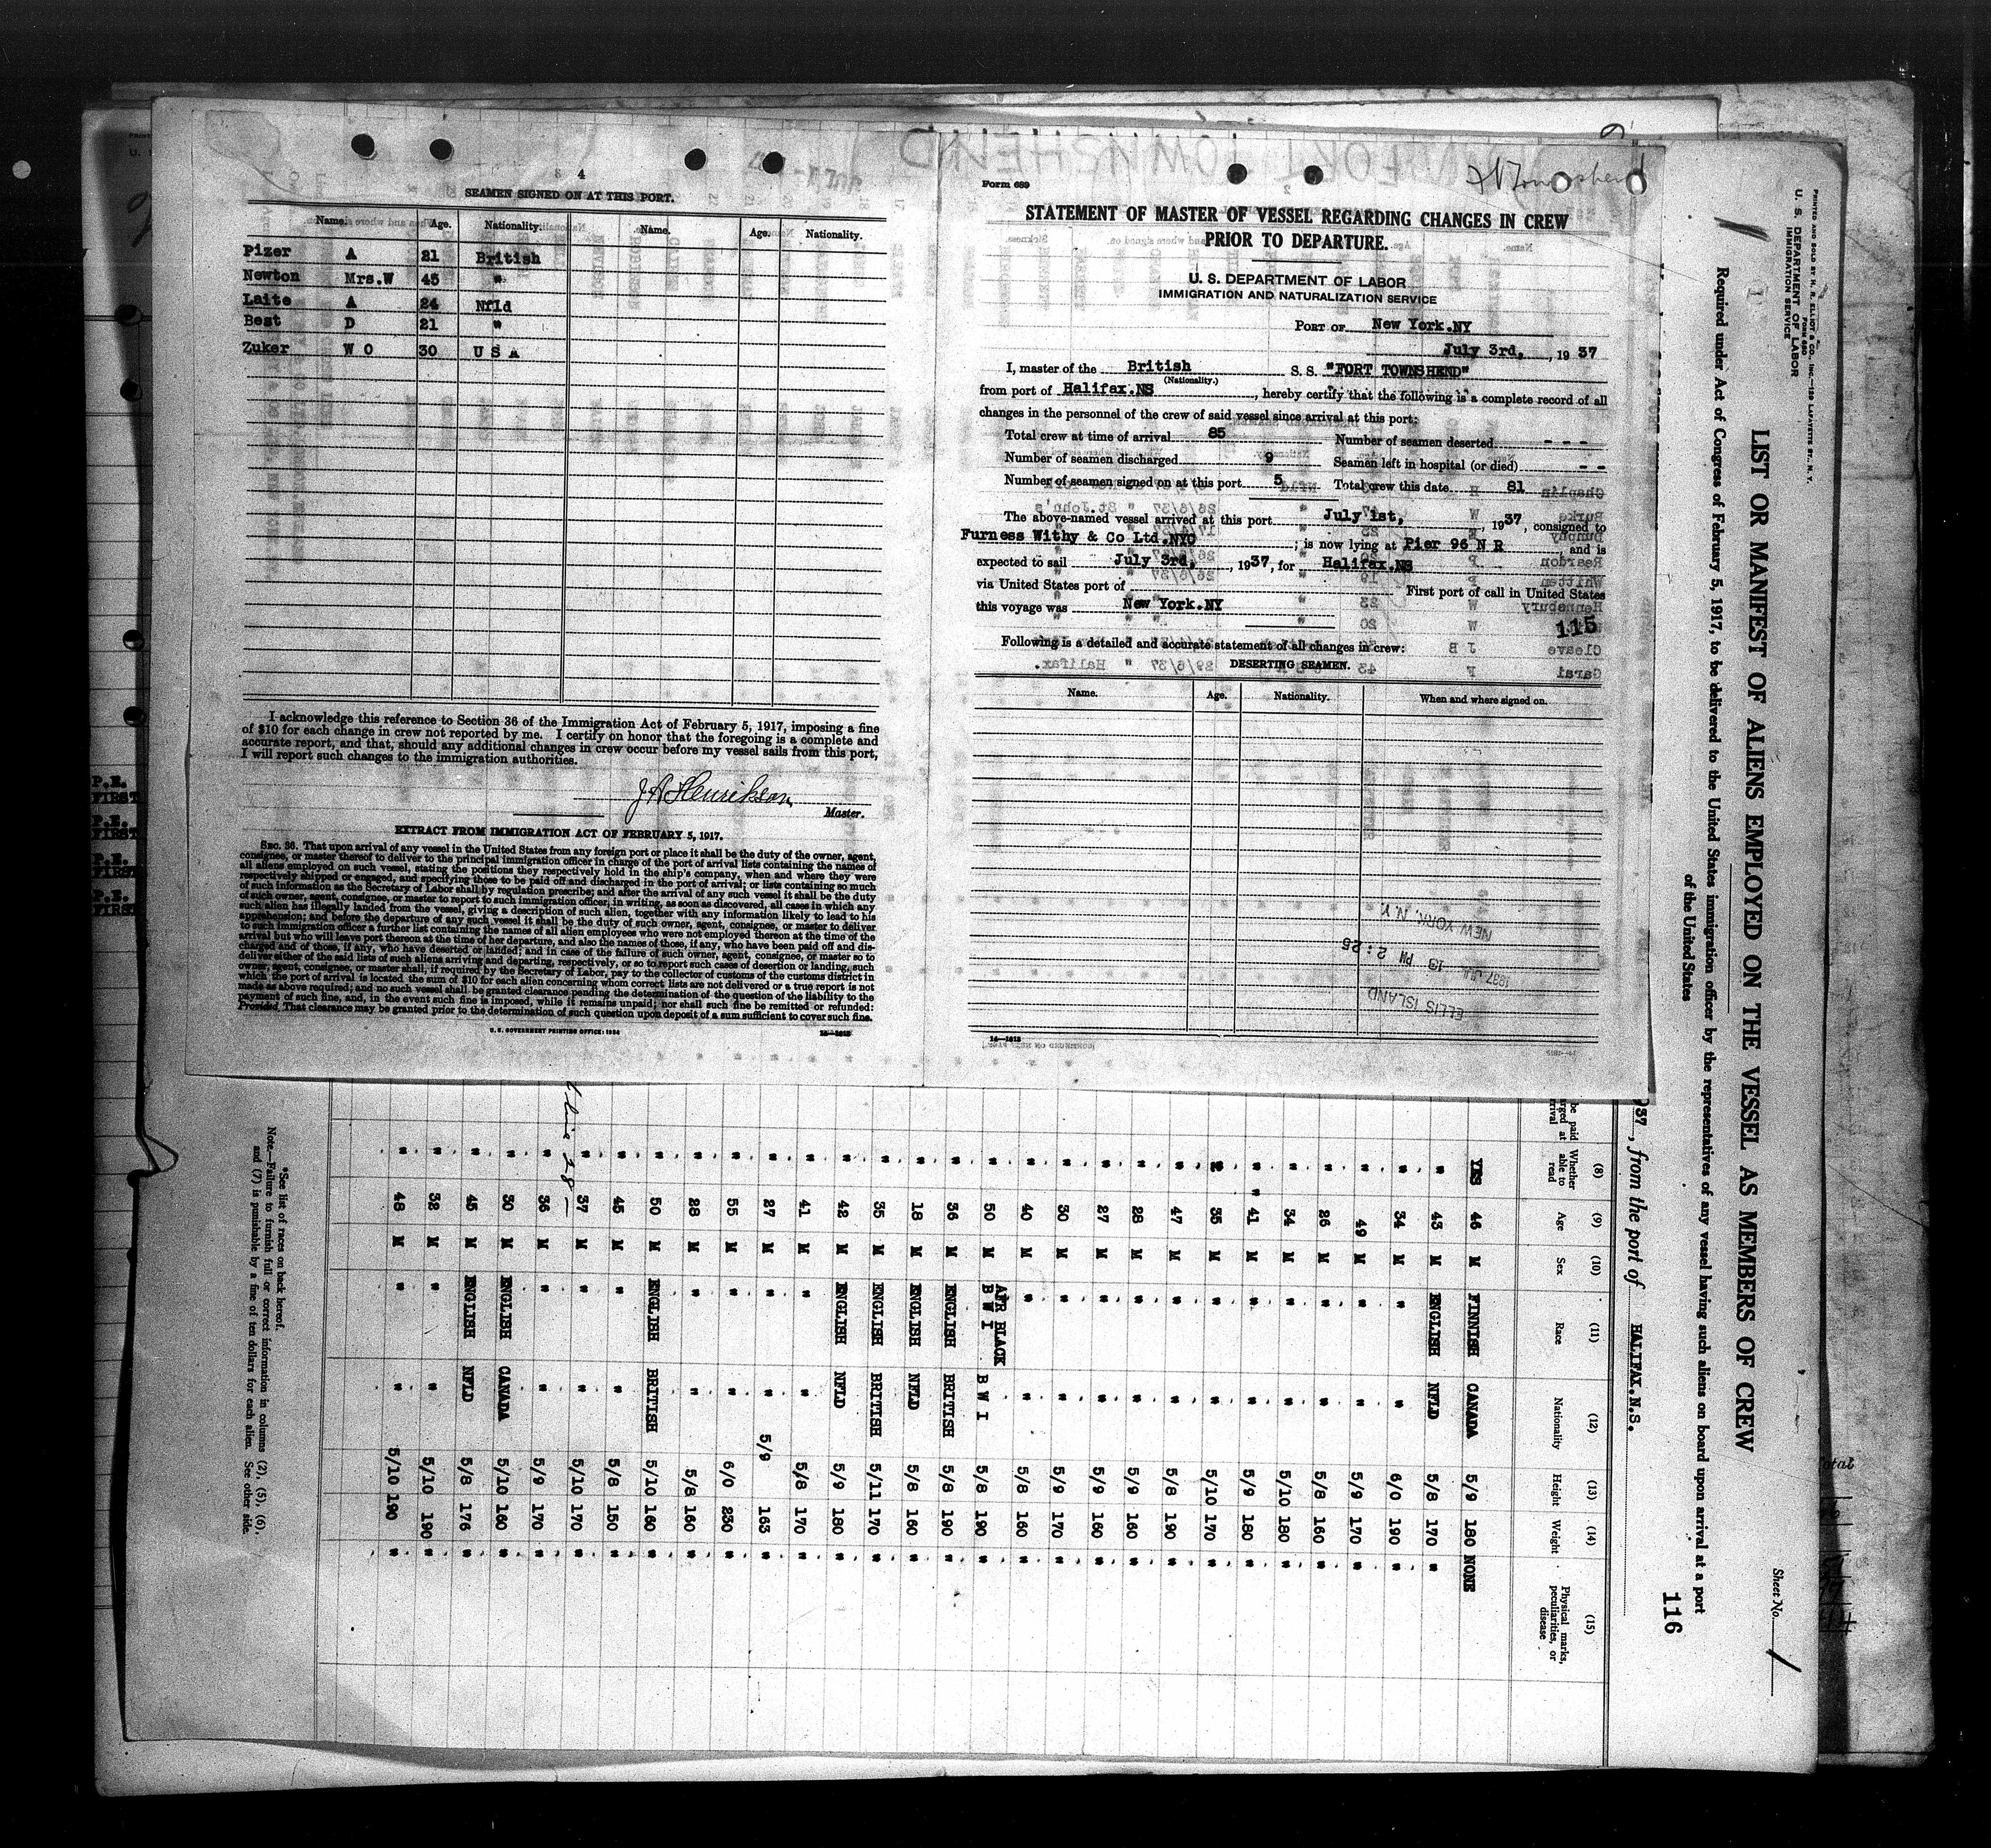 4
SEAMEN SIGNED ON AT THIS PORT.
Name. Age. Nationality. Name. Age. Nationality.
Pizer A 21 British
Newton Mrs.W 45 "
Laite A 24 Nfld
Best D 21 "
Zuker W O 30 U S A
I acknowledge this reference to Section 36 of the Immigration Act of February 5, 1917, imposing a fine
of $10 for each change in crew not reported by me. I certify on honor that the foregoing is a complete and
accurate report, and that, should any additional changes in crew occur before my vessel sails from this port,
I will report such changes to the immigration authorities.
J A Henrikson
Master.
EXTRACT FROM IMMIGRATION ACT OF FEBRUARY 5, 1917.
SEC. 36. That upon arrival of any vessel in the United States from any foreign port or place it shall be the duty of the owner, agent,
consignee, or master thereof to deliver to the principal immigration officer in charge of the port of arrival lists containing the names of
all aliens employed on such vessel, stating the positions they respectively hold in the ship's company, when and where they were
respectively shipped or engaged, and specifying those to be paid off and discharged in the port of arrival; or lists containing so much
of such information as the Secretary of Labor shall by regulation prescribe; and after the arrival of any such vessel it shall be the duty
of such owner, agent, consignee, or master to report to such immigration officer, in writing, as soon as discovered, all cases in which any
such alien has illegally landed from the vessel, giving a description of such alien, together with any information likely to lead to his
apprehension; and before the departure of any such vessel it shall be the duty of such owner, agent, consignee, or master to deliver
to such immigration officer a further list containing the names of all alien employees who were not employed thereon at the time of the
arrival but who will leave port thereon at the time of her departure, and also the names of those, if any, who have been paid off and dis-
charged and of those, if any, who have deserted or landed; and in case of the failure of such owner, agent, consignee, or master so to
deliver either of the said lists of such aliens arriving and departing, respectively, or so to report such cases of desertion or landing, such
owner, agent, consignee, or master shall, if required by the Secretary of Labor, pay to the collector of customs of the customs district in
which the port of arrival is located the sum of $10 for each alien concerning whom correct lists are not delivered or a true report is not
made as above required; and no such vessel shall be granted clearance pending the determination of the question of the liability to the
payment of such fine, and, in the event such fine is imposed, while it remains unpaid; nor shall such fine be remitted or refunded:
Provided, That clearance may be granted prior to the determination of such question upon deposit of a sum sufficient to cover such fine.
U. S. GOVERNMENT PRINTING OFFICE: 1934
Form 689
STATEMENT OF MASTER OF VESSEL REGARDING CHANGES IN CREW
PRIOR TO DEPARTURE.
U. S. DEPARTMENT OF LABOR
IMMIGRATION AND NATURALIZATION SERVICE
PORT OF New York.NY
July 3rd, , 1937
I, master of the British S. S. "FORT TOWNSHEND"
(Nationality.)
from port of Halifax.NS , hereby certify that the following is a complete record of all
changes in the personnel of the crew of said vessel since arrival at this port:
Total crew at time of arrival 85 Number of seamen deserted - - -
Number of seamen discharged 9 Seamen left in hospital (or died) - -
Number of seamen signed on at this port 5 Total crew this date 81
The above-named vessel arrived at this port July 1st, , 1937, consigned to
Furness Withy & Co Ltd.NYC ; is now lying at Pier 96 N R , and is
expected to sail July 3rd, , 1937, for Halifax.NS
via United States port of First port of call in United States
this voyage was New York.NY
115
Following is a detailed and accurate statement of all changes in crew:
DESERTING SEAMEN.
Name. Age. Nationality. When and where signed on.
ELLIS ISLAND
13 PM 2:25
NEW YORK, N.Y.
PRINTED AND SOLD BY H. R. ELLIOT & CO., INC.—129 LAFAYETTE ST., N. Y.
FORM 680
U. S. DEPARTMENT OF LABOR
IMMIGRATION SERVICE
LIST OR MANIFEST OF ALIENS EMPLOYED ON THE VESSEL AS MEMBERS OF CREW
Sheet No. 1
Required under Act of Congress of February 5, 1917, to be delivered to the United States immigration officer by the representatives of any vessel having such aliens on board upon arrival at a port
of the United States
116
37, from the port of HALIFAX.N.S.
(8) (9) (10) (11) (12) (13) (14) (15)
Whether able to read Age Sex Race Nationality Height Weight Physical marks, peculiarities, or disease
YES 46 M FINNISH CANADA 5/9 180 NONE
" 43 M ENGLISH NFLD 5/8 170 "
" 34 M " " 6/0 190 "
" 49 M " " 5/9 170 "
" 26 M " " 5/8 160 "
" 34 M " " 5/10 180 "
" 41 M " " 5/9 180 "
" 35 M " " 5/10 170 "
" 47 M " " 5/8 190 "
" 28 M " " 5/9 160 "
" 27 M " " 5/9 160 "
" 30 M " " 5/9 170 "
" 40 M " " 5/8 160 "
" 50 M AFR BLACK B W I B W I 5/8 190 "
" 36 M ENGLISH BRITISH 5/8 190 "
" 18 M ENGLISH NFLD 5/8 160 "
" 35 M ENGLISH BRITISH 5/11 170 "
" 42 M ENGLISH NFLD 5/9 180 "
" 41 M " " 5/8 170 "
" 27 M " " 5/9 163 "
" 55 M " " 6/0 230 "
" 28 M " " 5/8 160 "
" 50 M ENGLISH BRITISH 5/10 160 "
" 45 M " " 5/8 150 "
" 37 M " " 5/10 170 "
" 36 M " " 5/9 170 "
" 30 M ENGLISH CANADA 5/10 160 "
" 45 M ENGLISH NFLD 5/8 176 "
" 32 M " " 5/10 190 "
" 48 M " " 5/10 190 "
*See list of races on back hereof.
Note.—Failure to furnish full or correct information in columns (2), (5), (6),
and (7) is punishable by a fine of ten dollars for each alien. See other side.
P.E.
FIRST
P.E.
FIRST
P.E.
FIRST
P.E.
FIRST